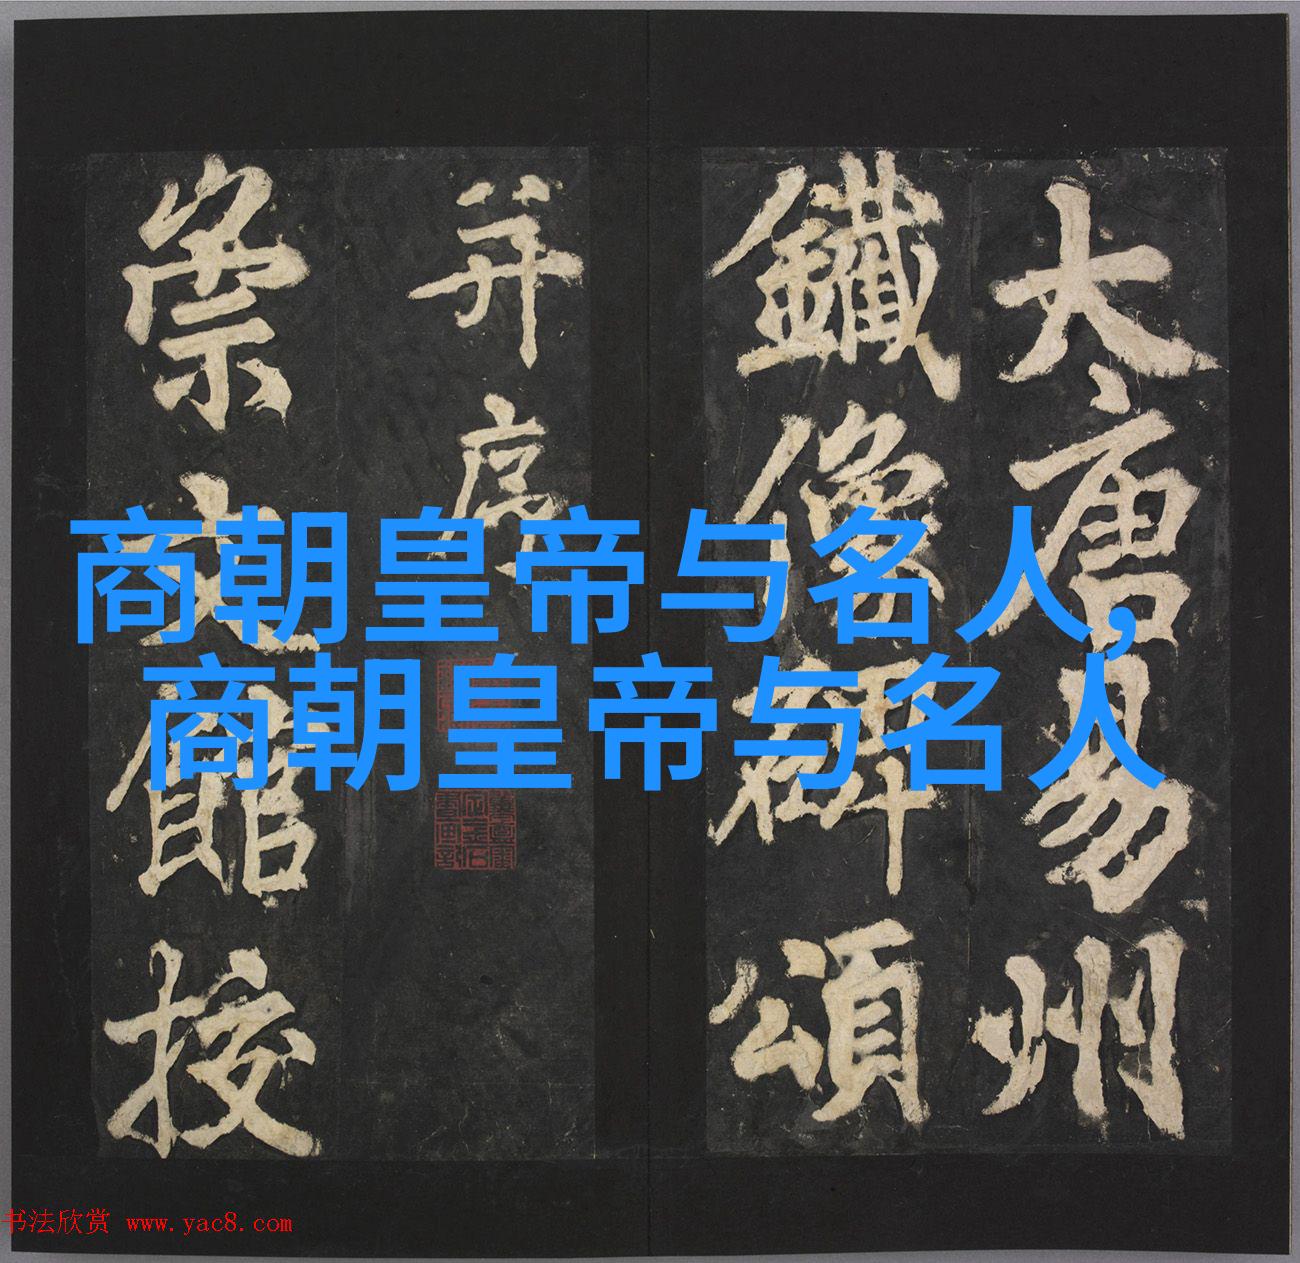 大唐易州
鐵像碑頌
并序
崇文館校
商朝皇帝与名人,
商朝皇帝与名人
书法欣赏 www.yac8.com